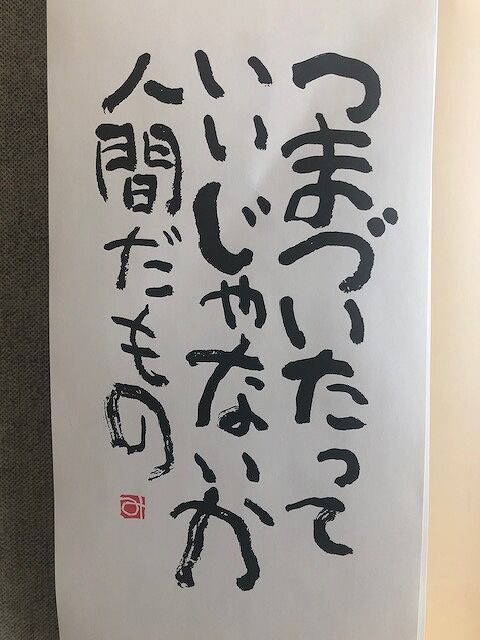 つまづいたって
いいじゃないか
人間だもの